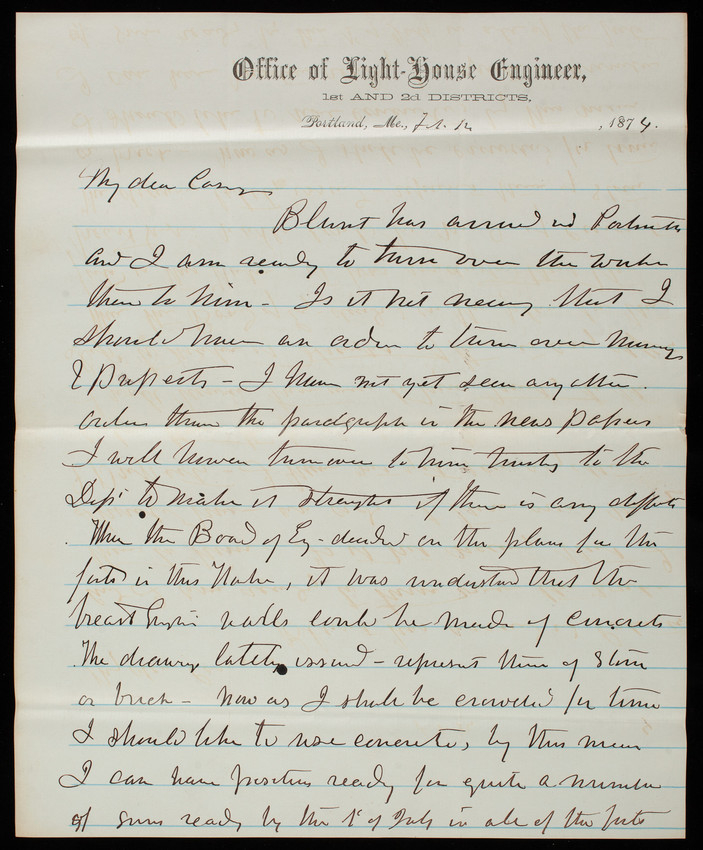 Office of Light-House Engineer,
1st AND 2d DISTRICTS,
Portland, Me., 1874.
My dear Casey
Blunt has arrived
and I am ready to turn over the works
there to him - Is it not necessary that I
should have an order to turn over money
& property - I have not yet seen any other
orders than the paragraph in the news papers
I will however turn over to him trusting to the
Dept to make it straight if there is any defect
When the Board of Eng - decided on the plans for the
forts in this Harbor, it was understood that the
breast height walls could be made of concrete
The drawings lately issued - represent them of stone
or brick - Now as I shall be crowded for time
I should like to use concrete, by this means
I can have positions ready for quite a number
of guns ready by the 1st of July in all of the forts